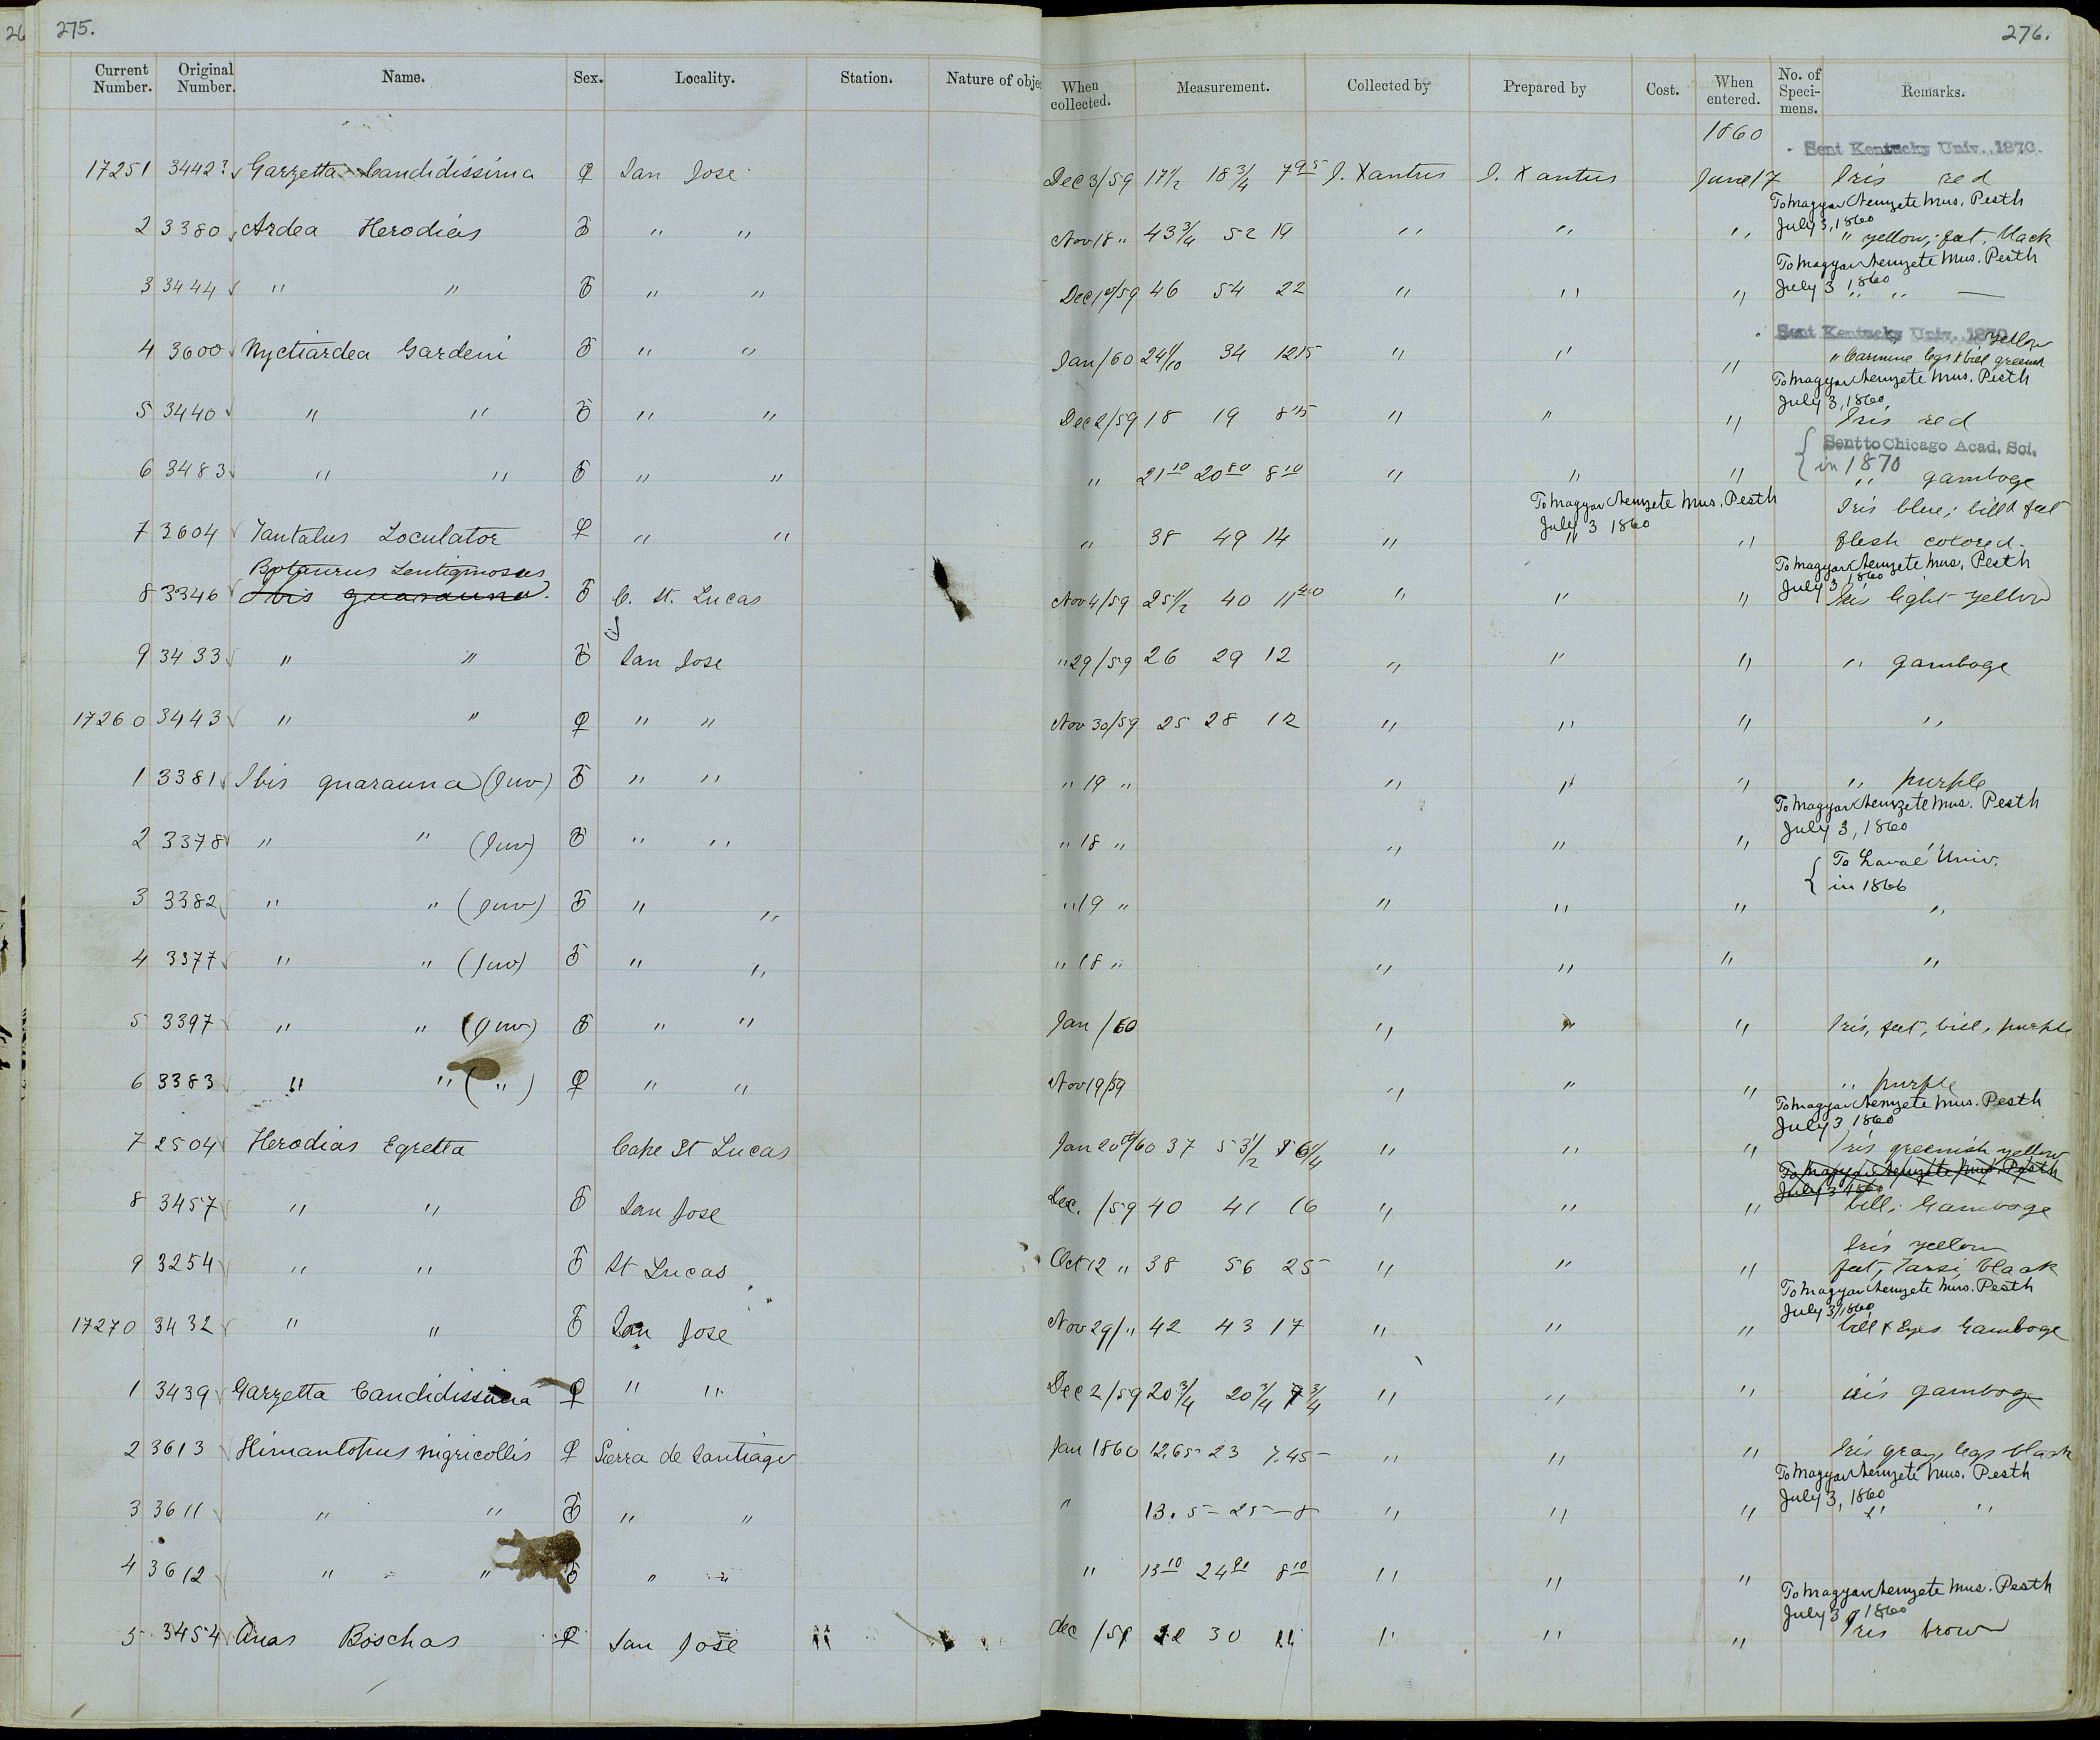 275.
276.
Current Number. Original Number. Name. Sex. Locality. Station. Nature of obje When collected. Measurement. Collected by Prepared by Cost. When entered. No. of Speci-mens. Remarks.
1860
Sent Kentucky Univ., 1870.
17251 3442? Garzetta Candidissima ♀ San Jose Dec 3/59 17 1/2 18 3/4 7 95 J. Xantus J. Xantus June 17 Iris red
To Magyar Nemzete Mus. Pesth
July 3, 1860
2 3380 Ardea Herodias ♂ " " Nov 18 " 43 3/4 52 19 " " " " yellow; feet, black
To Magyar Nemzete Mus. Pesth
July 3 1860
3 3444 " " ♂ " " Dec 10/59 46 54 22 " " " " " —
Sent Kentucky Univ., 1870
yellow
4 3600 Nyctiardea Gardeni ♂ " " Jan/60 24 1/10 34 12 15 " " " " Carmine legs & bill greenish
To Magyar Nemzete Mus. Pesth
July 3, 1860
5 3440 " " ♂ " " Dec 2/59 18 19 8 15 " " " Iris red
Sent to Chicago Acad. Sci.
in 1870
6 3483 " " ♂ " " " 21 10 20 80 8 10 " " " " gamboge
To Magyar Nemzete Mus. Pesth
July 3 1860
Iris blue; bill & feet
7 3604 Tantalus Loculator ♀ " " " 38 49 14 " " " flesh colored.
Botaurus Lentiginosus
To Magyar Nemzete Mus, Pesth
July 3 1860
8 3346 Ibis guarauna. ♂ C. St. Lucas Nov 4/59 25 1/2 40 11 40 " " " Iris light yellow
9 3433 " " ♂ San Jose " 29/59 26 29 12 " " " " gamboge
17260 3443 " " ♀ " " Nov 30/59 25 28 12 " " " "
1 3381 Ibis guarauna (Juv) ♂ " " " 19 " " " " " purple
To Magyar Nemzete Mus. Pesth
July 3, 1860
2 3378 " " (Juv) ♂ " " " 18 " " " " "
To Laval Univ.
in 1866
3 3382 " " (Juv) ♂ " " " 19 " " " " "
4 3377 " " (Juv) ♂ " " " 18 " " " " "
5 3397 " " (Juv) ♂ " " Jan/60 " " " Iris, feet, bill, purple
6 3383 " " ( " ) ♀ " " Nov 19/59 " " " " purple
To Magyar Nemzete Mus. Pesth
July 3 1860
7 2504 Herodias Egretta Cape St Lucas Jan 20th/60 37 53 1/2 16 1/4 " " " Iris greenish yellow
To Magyar Nemzete Mus. Pesth
July 3 1860
8 3457 " " ♂ San Jose Dec. /59 40 41 16 " " " bill; Gamboge
Iris yellow
9 3254 " " ♂ St Lucas Oct 12 " 38 56 25 " " " feet, Tarsi, black
To Magyar Nemzete Mus. Pesth
July 3/1860
17270 3432 " " ♂ San Jose Nov 29/ " 42 43 17 " " " bill & Eyes Gamboge
1 3439 Garzetta Candidissima ♀ " " Dec 2/59 20 3/4 20 3/4 7 3/4 " " " iris gamboge
2 3613 Himantopus nigricollis ♀ Sierra de Santiago Jan 1860 12.65 23 7.45 " " " Iris gray, legs black
To Magyar Nemzete Mus. Pesth
July 3, 1860
3 3611 " " ♂ " " " 13.5 - 25 - 8 " " " " "
4 3612 " " ♂ " " " 13 10 24 90 8 10 " " "
To Magyar Nemzete Mus. Pesth
July 3, 1860
5 3454 Anas Boschas ♀ San Jose Dec /59 22 30 11 " " " Iris brown